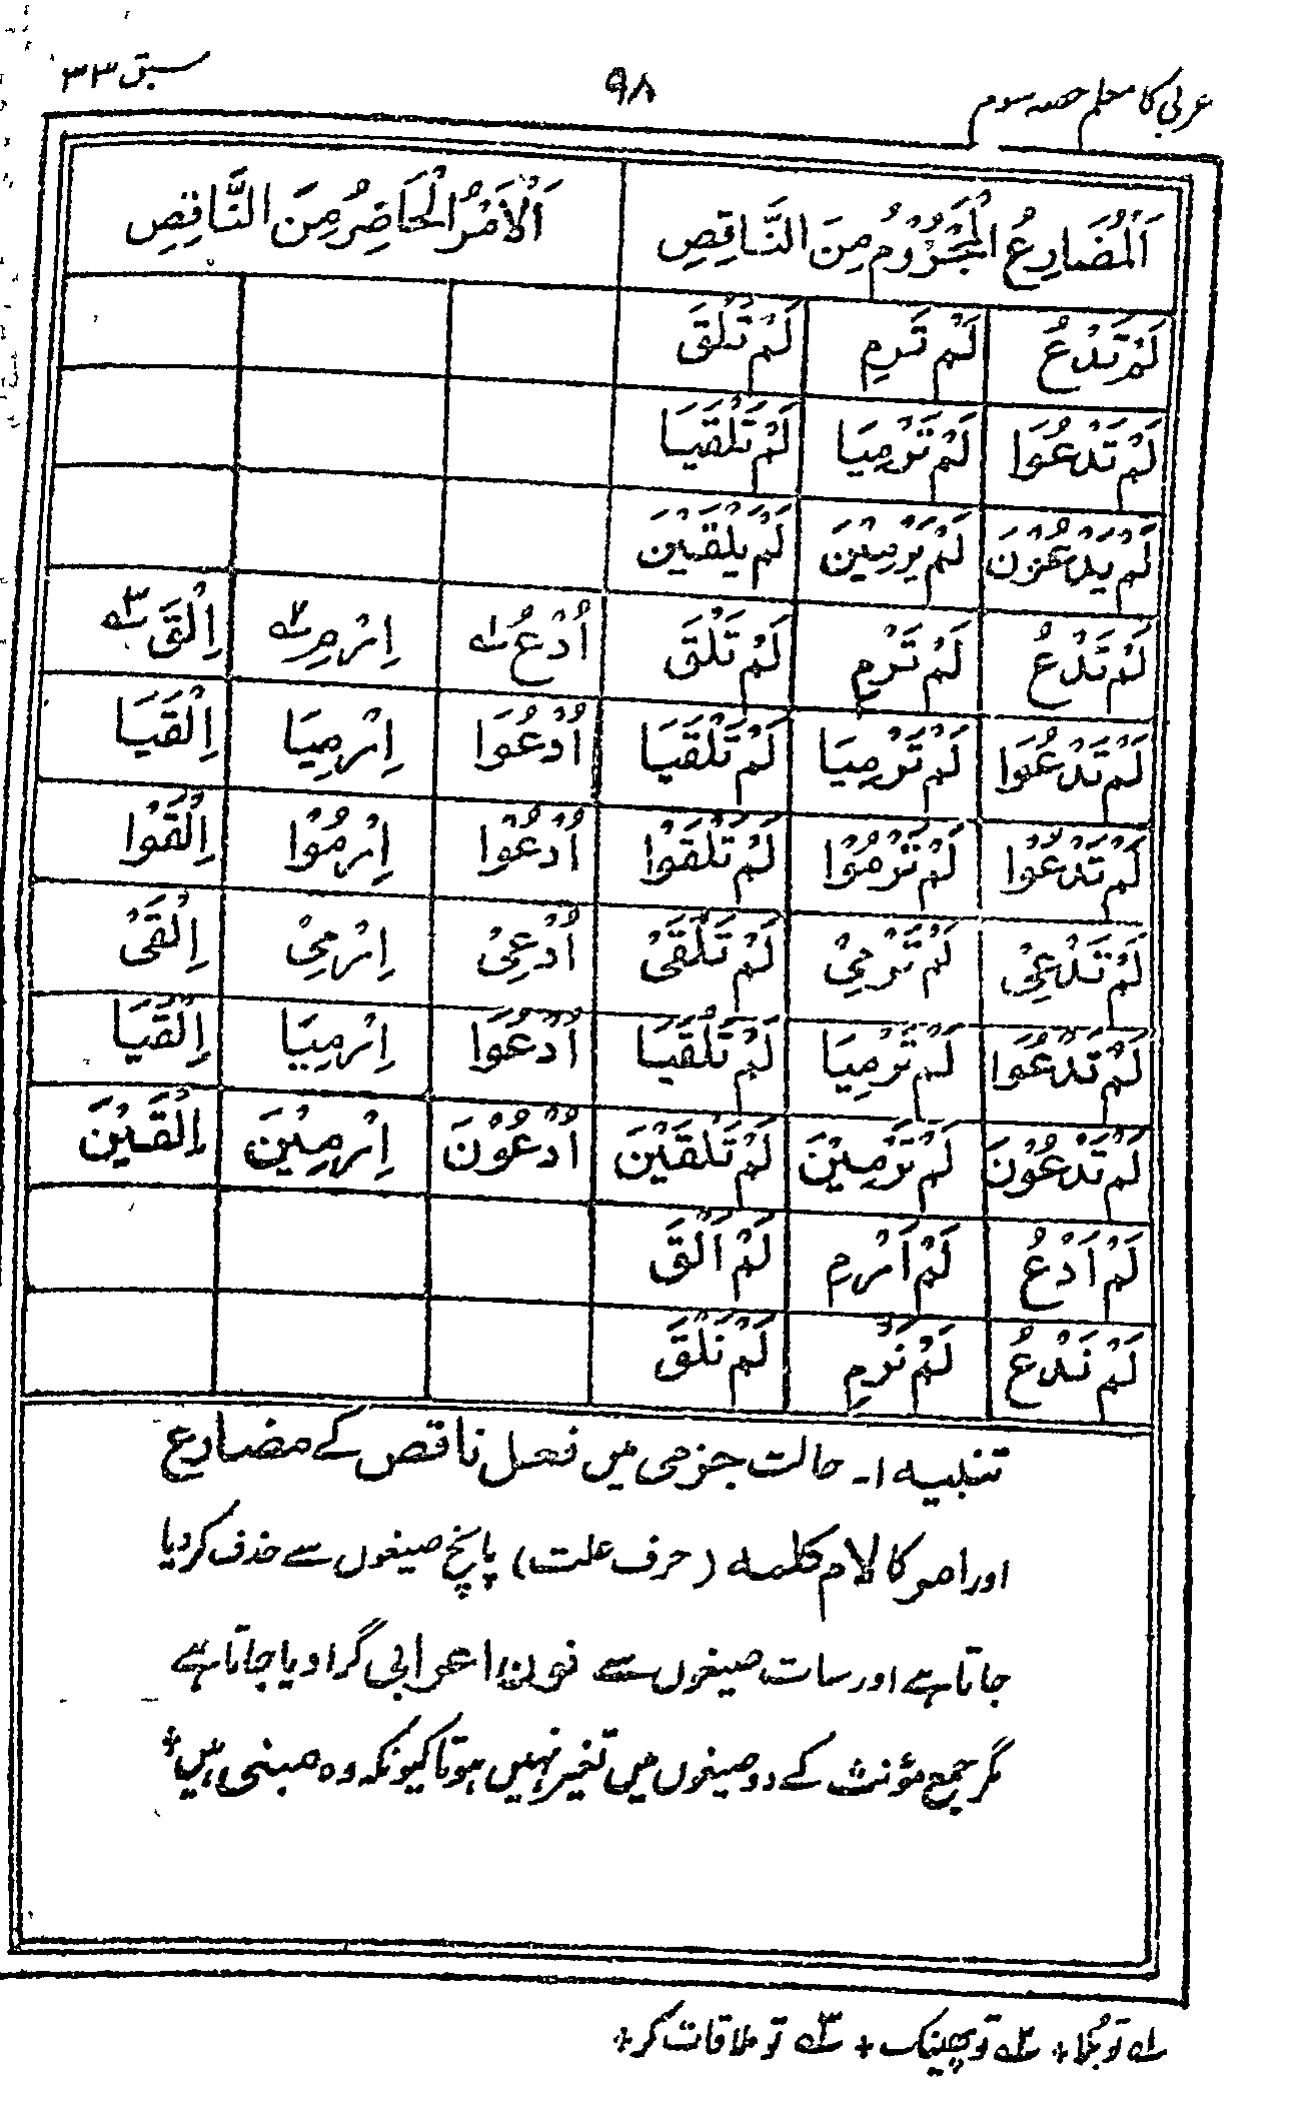 عربی کا معلم حصہ سوم ۹۸ سبق ۳۳
اَلْمُضَارِعُ الْمَجْزُوْمُ مِنَ النَّاقِصِ اَلْاَمْرُ الْحَاضِرُ مِنَ النَّاقِصِ
لَمْ تَدْعُ لَمْ تَرْمِ لَمْ تَلْقَ
لَمْ تَدْعُوَا لَمْ تَرْمِيَا لَمْ تَلْقَيَا
لَمْ يَدْعُوْنَ لَمْ يَرْمِيْنَ لَمْ يَلْقَيْنَ
لَمْ تَدْعُ لَمْ تَرْمِ لَمْ تَلْقَ اُدْعُ ۱؎ اِرْمِ ۲؎ اِلْقَ ۳؎
لَمْ تَدْعُوَا لَمْ تَرْمِيَا لَمْ تَلْقَيَا اُدْعُوَا اِرْمِيَا اِلْقَيَا
لَمْ تَدْعُوْا لَمْ تَرْمُوْا لَمْ تَلْقَوْا اُدْعُوْا اِرْمُوْا اِلْقَوْا
لَمْ تَدْعِيْ لَمْ تَرْمِيْ لَمْ تَلْقَيْ اُدْعِيْ اِرْمِيْ اِلْقَيْ
لَمْ تَدْعُوَا لَمْ تَرْمِيَا لَمْ تَلْقَيَا اُدْعُوَا اِرْمِيَا اِلْقَيَا
لَمْ تَدْعُوْنَ لَمْ تَرْمِيْنَ لَمْ تَلْقَيْنَ اُدْعُوْنَ اِرْمِيْنَ اِلْقَيْنَ
لَمْ اَدْعُ لَمْ اَرْمِ لَمْ اَلْقَ
لَمْ نَدْعُ لَمْ نَرْمِ لَمْ نَلْقَ
تنبیہ ۱۔ حالت جزمی میں فعل ناقص کے مضارع
اور امر کا لام کلمہ (حرف علت) پانچ صیغوں سے حذف کردیا
جاتا ہے اور سات صیغوں سے نون اعرابی گرا دیا جاتا ہے
مگر جمع مؤنث کے دو صیغوں میں تغیر نہیں ہوتا کیونکہ وہ مبنی ہیں +
۱؎ تو بُلا + ۲؎ تو پھینک + ۳؎ تو ملاقات کر +